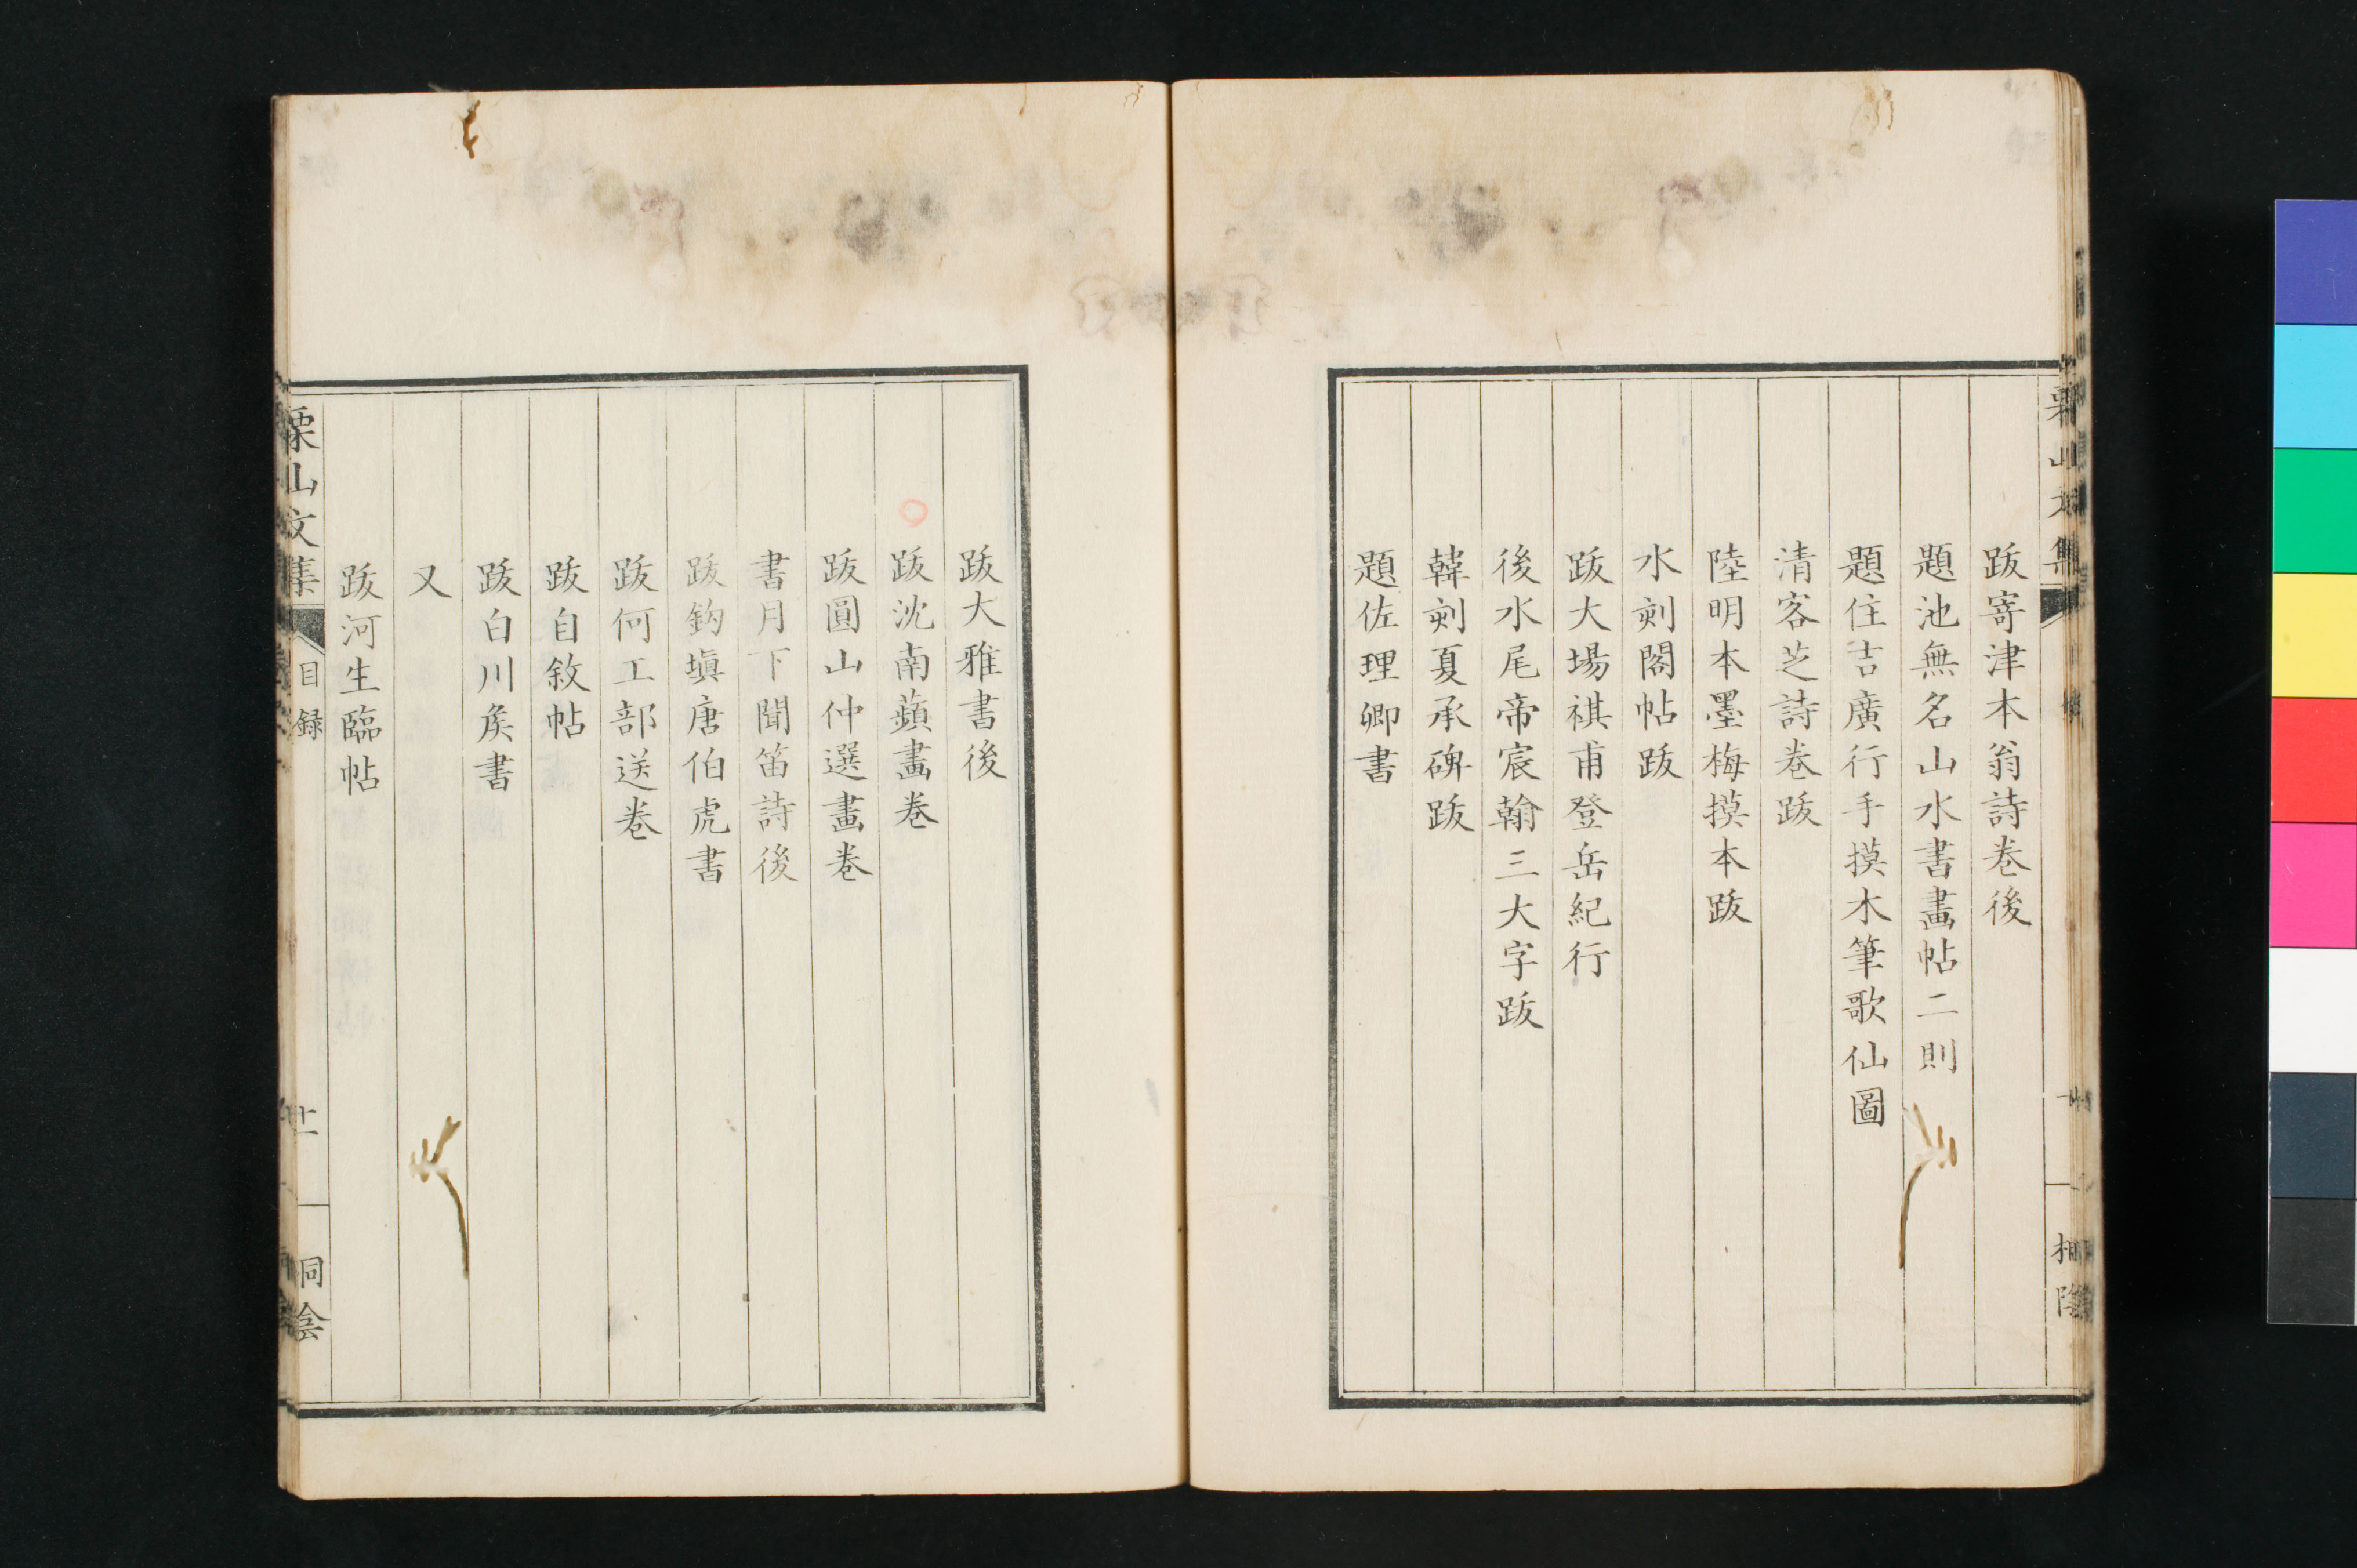 跋寄津本翁詩卷後
題池無名山水書畫帖二則
題住吉廣行手摸木筆歌仙圖
清客芝詩卷跋
陸明本墨梅摸本跋
水刻閣帖跋
跋大場祺甫登岳紀行
後水尾帝宸翰三大字跋
韓刻夏承碑跋
題佐理卿書
跋大雅書後
跋沈南蘋畫卷
跋圓山仲選畫卷
書月下聞笛詩後
跋鈎塡唐伯虎書
跋何工部送卷
跋自敘帖
跋白川矦書
又
跋河生臨帖
栗山文集
目録